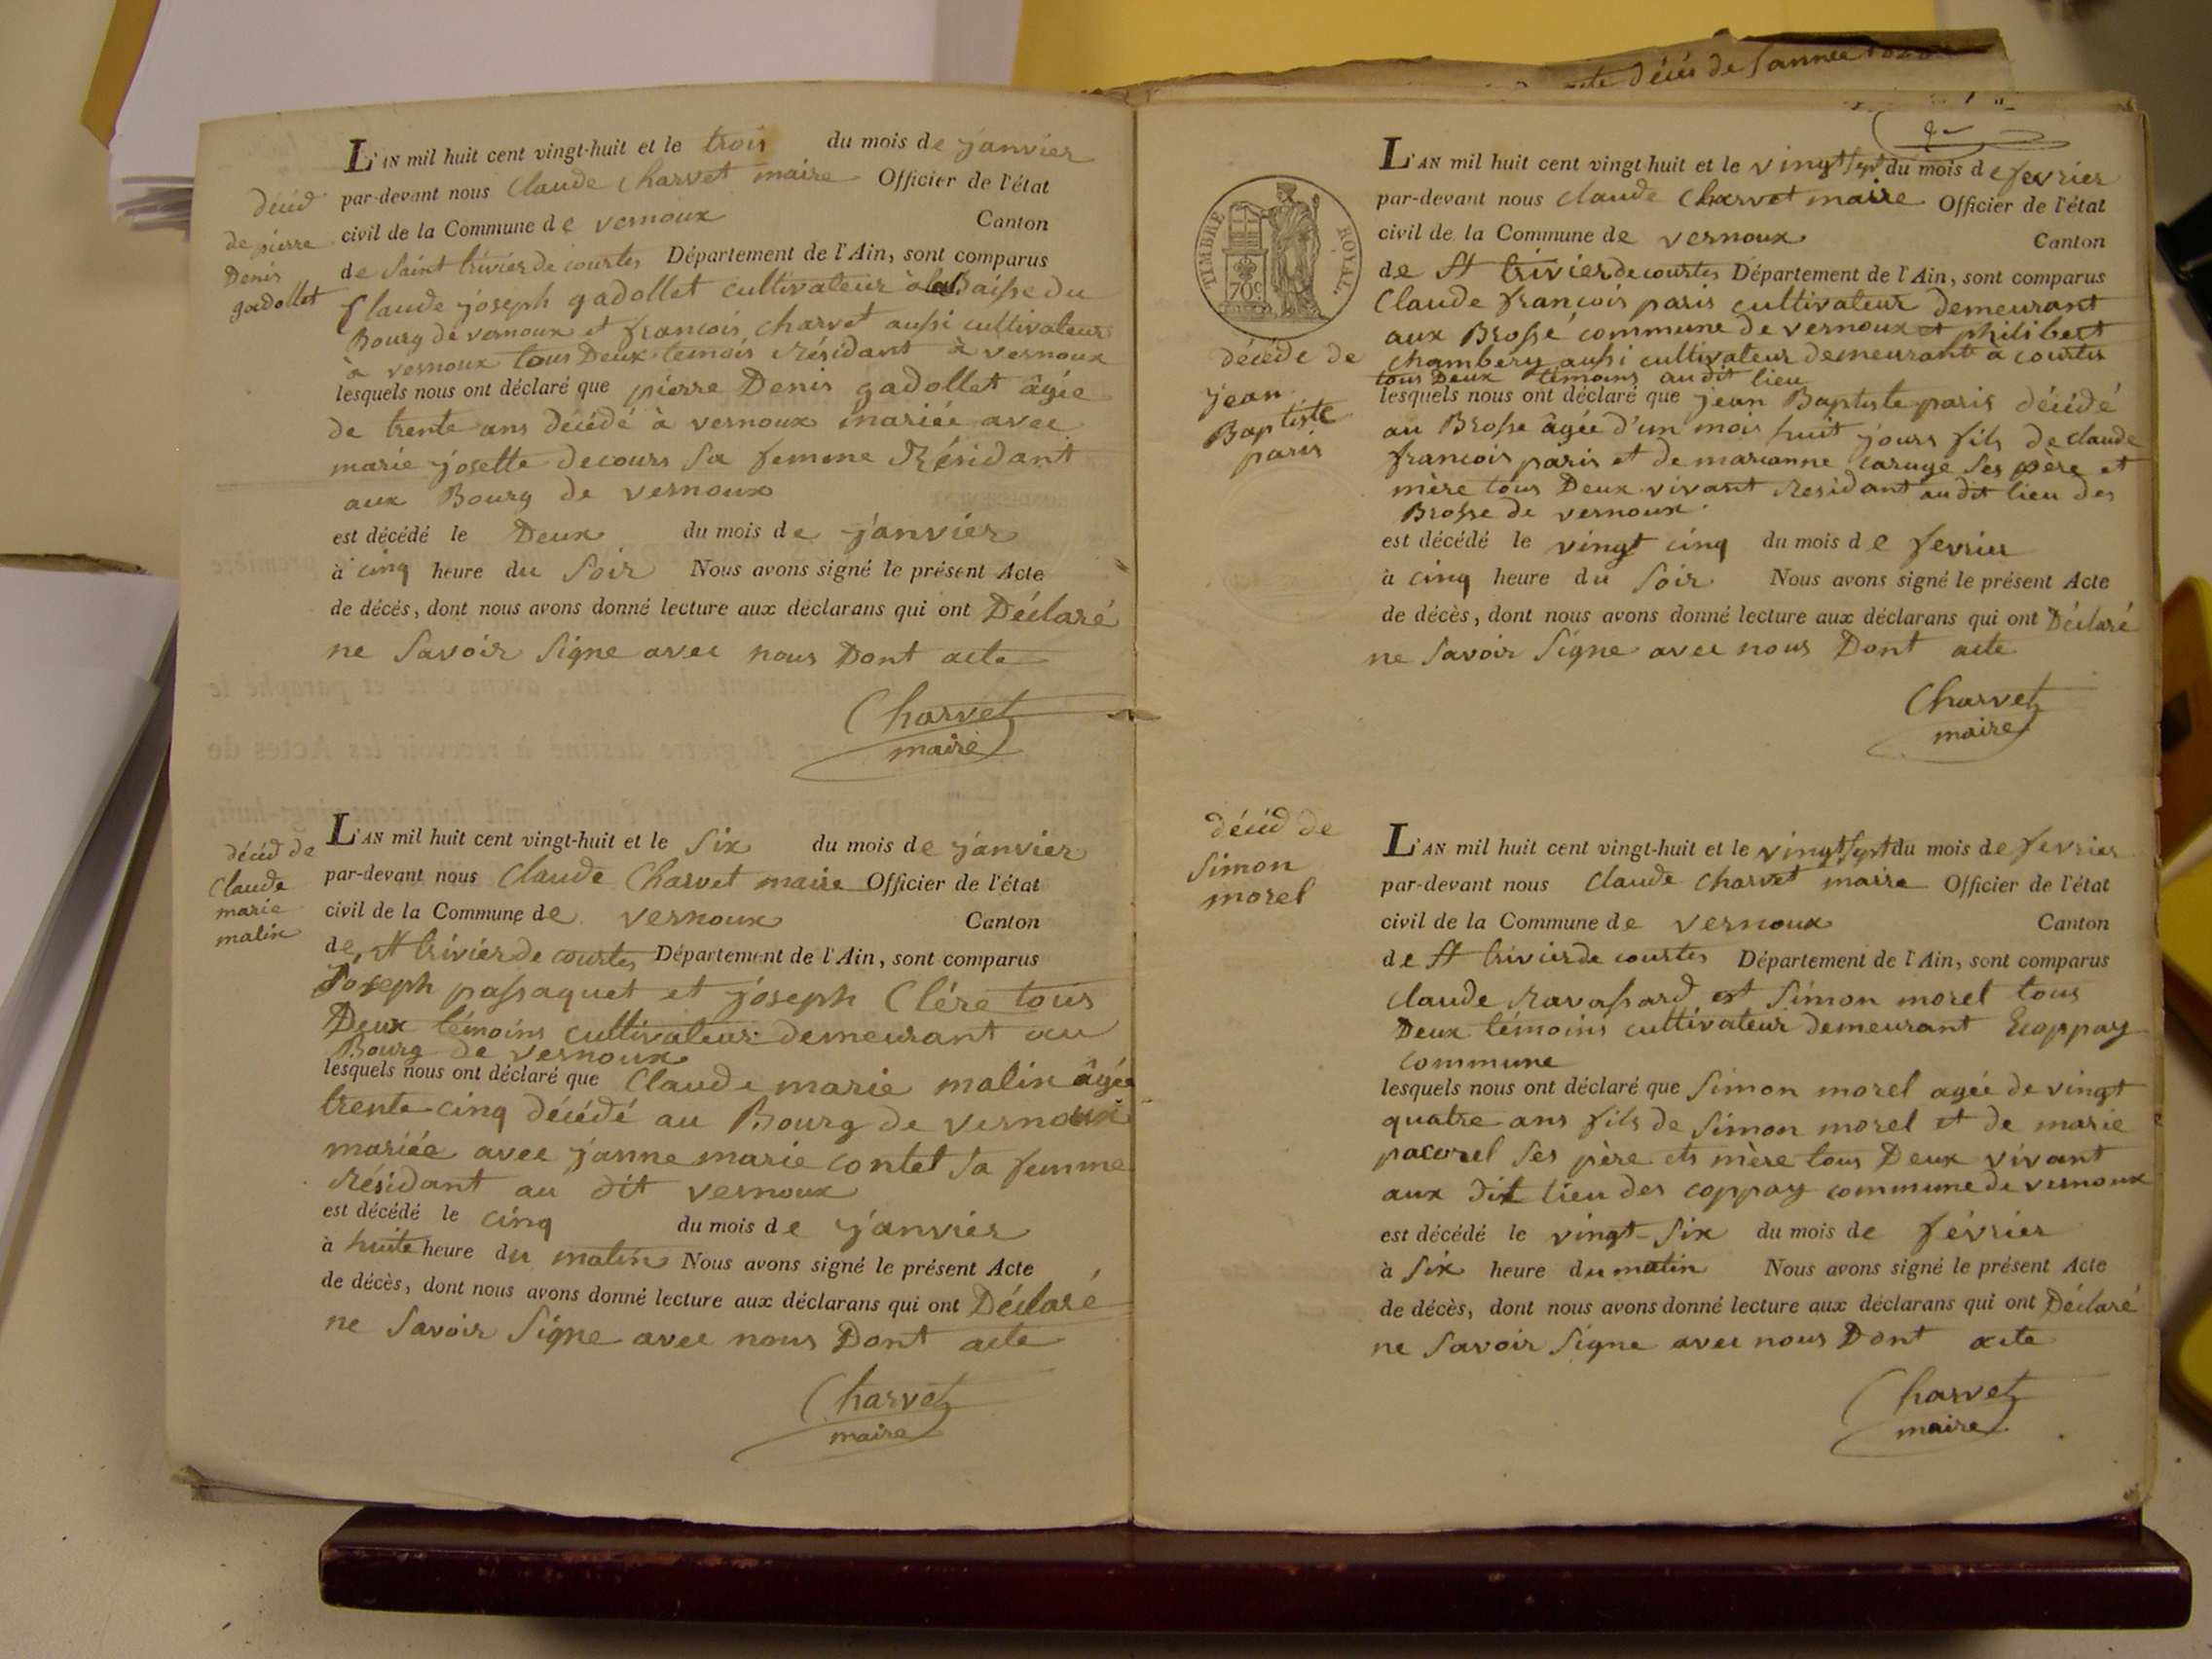 décéd
de pierre
Denis
gadollet
L'AN mil huit cent vingt-huit et le trois du mois de janvier
par-devant nous Claude Charvet maire Officier de l'état
civil de la Commune de vernoux Canton
de Saint trivier de courtes Département de l'Ain, sont comparus
Claude joseph gadollet cultivateur à la Baisse du
Bourg de vernoux et francois charvet aussi cultivateur
à vernoux tous Deux temois résidant à vernoux
lesquels nous ont déclaré que piérre Denis gadollet âgée
de trente ans décédé à vernoux mariée avec
marie josette decours sa femme Résidant
aux Bourg de vernoux
est décédé le Deux du mois de janvier
à cinq heure du soir Nous avons signé le présent Acte
de décés, dont nous avons donné lecture aux déclarans qui ont Déclaré
ne Savoir Signe avec nous Dont acte
Charvet
maire
décéd de
Claude
marie
malin
L'AN mil huit cent vingt-huit et le Six du mois de janvier
par-devant nous Claude Charvet maire Officier de l'état
civil de la Commune de vernoux Canton
de St trivier de courtes Département de l'Ain, sont comparus
Joseph passaquet et joseph Clére tous
Deux témoins cultivateur demeurant au
Bourg de vernoux
lesquels nous ont déclaré que Claude marie malin âgée
trente cinq décédé au Bourg de vernoux
mariée avec janne marie contet sa femme
résidant au dit vernoux
est décédé le cinq du mois de janvier
à huite heure du matin Nous avons signé le présent Acte
de décès, dont nous avons donné lecture aux déclarans qui ont Déclaré
ne Savoir Signe avec nous Dont acte
Charvet
maire
décés de l'annee
TIMBRE ROYAL
70c
décéde de
jean
Baptiste
paris
L'AN mil huit cent vingt-huit et le vingt sept du mois de fevrier
par-devant nous claude Charvet maire Officier de l'état
civil de la Commune de vernoux Canton
de St trivier de courtes Département de l'Ain, sont comparus
Claude francois paris cultivateur demeurant
aux Brosse commune de vernoux et philibert
chambery aussi cultivateur demeurant à courtes
tous Deux témoins au dit lieu
lesquels nous ont déclaré que jean Baptiste paris décédé
au Brosse âgée d'un mois huit jours fils de claude
francois paris et de marianne caruge ses père et
mère tous Deux vivant résidant au dit lieu des
Brosse de vernoux
est décédé le vingt cinq du mois de fevrier
à cinq heure du soir Nous avons signé le présent Acte
de décès, dont nous avons donné lecture aux déclarans qui ont Déclaré
ne Savoir Signe avec nous Dont acte
Charvet
maire
décéd de
Simon
morel
L'AN mil huit cent vingt-huit et le vingt sept du mois de fevrier
par-devant nous Claude Charvet maire Officier de l'état
civil de la Commune de vernoux Canton
de St trivier de courtes Département de l'Ain, sont comparus
Claude ravassard et Simon morel tous
Deux témoins cultivateur demeurant Ecoppay
commune
lesquels nous ont déclaré que Simon morel agée de vingt
quatre ans fils de Simon morel et de marie
pacorel ses père ets mère tous Deux vivant
aux dit lieu des coppay commune de vernoux
est décédé le vingt-six du mois de février
à six heure du matin Nous avons signé le présent Acte
de décès, dont nous avons donné lecture aux déclarans qui ont Déclaré
ne Savoir Signe avec nous Dont acte
Charvet
maire